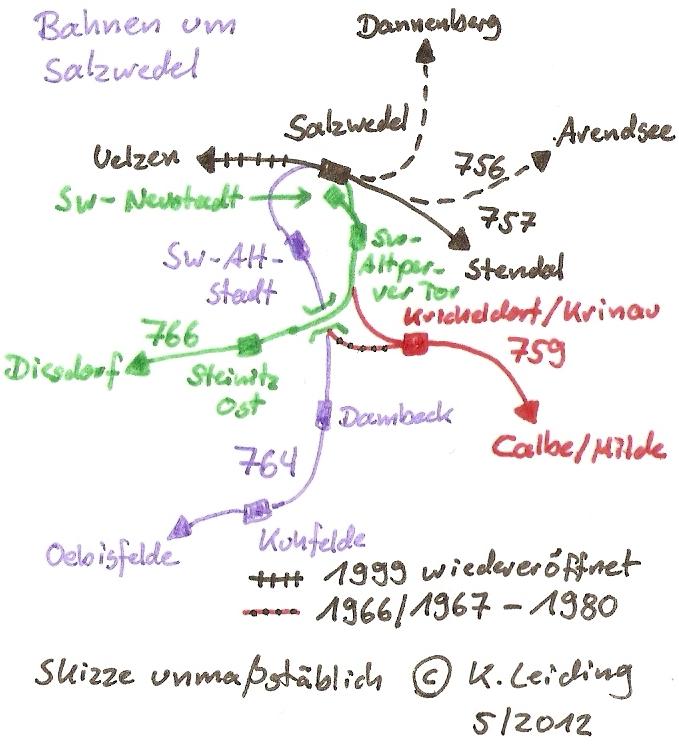 Bahnen um
Salzwedel
Dannenberg
Salzwedel
Arendsee
Uelzen
756
Sw-Neustadt
757
Sw-Alt-
stadt
Sw-
Altper-
ver Tor
Stendal
Kricheldorf/Krinau
766
759
Diesdorf
Steinitz
Ost
Dambeck
Calbe/Milde
764
Oebisfelde
Kuhfelde
1999 wiedereröffnet
1966/1967 - 1980
Skizze unmaßstäblich © K. Leiding
5/2012